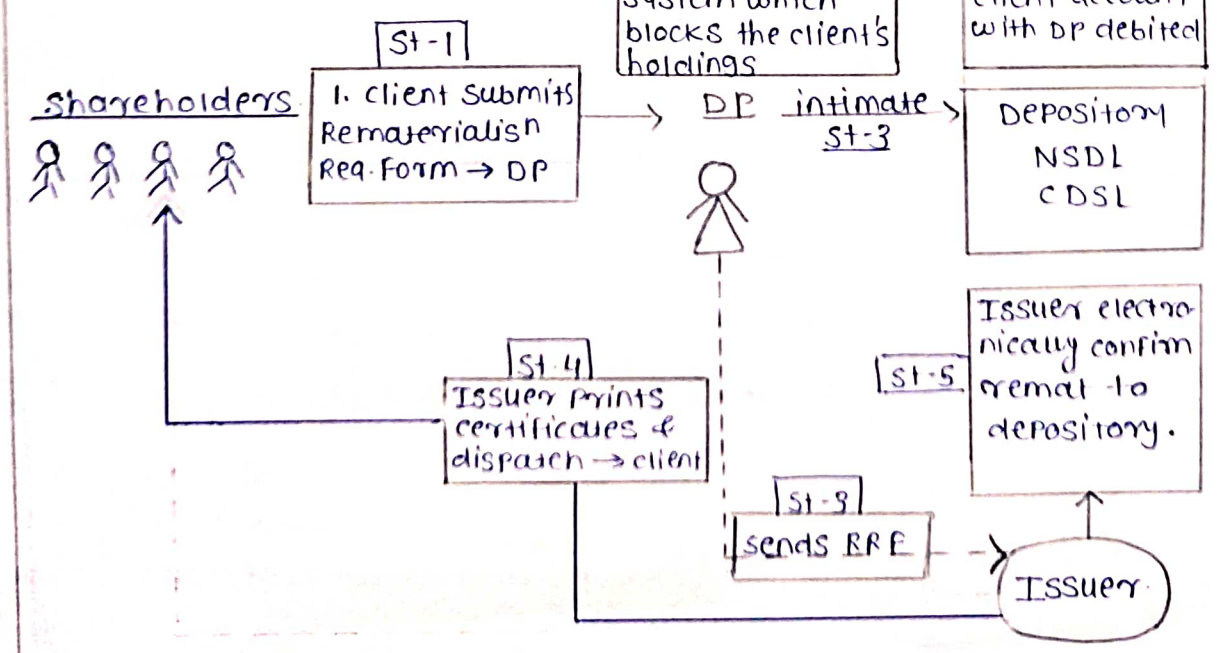 system which
blocks the client's
holdings
with DP debited
St-1
shareholders
1. Client submits
Rematerialisn
Req. Form → DP
DP
intimate
St-3
Depository
NSDL
CDSL
St-4
Issuer prints
dispatch → client
St-5
Issuer electro-
nically confirm
remat to
depository.
St-3
sends RRF
Issuer